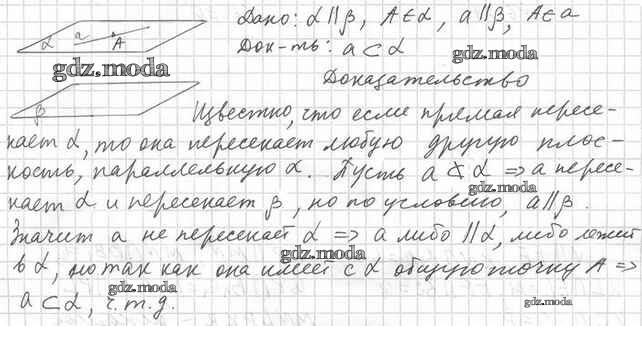 Дано: α ∥ β, A ∈ α, a ∥ β, A ∈ a
α a A
Док-ть: a ⊂ α
gdz.moda
gdz.moda
Доказательство
β
Известно, что если прямая пересе-
кает α, то она пересекает любую другую плос-
кость, параллельную α. Пусть a ⊄ α ⇒ a пересе-
gdz.moda
кает α и пересекает β, но по условию, a ∥ β.
Значит a не пересекает α ⇒ a либо ∥ α, либо лежит
gdz.moda
в α, но так как она имеет с α общую точку A ⇒
a ⊂ α, ч.т.д.
gdz.moda
gdz.moda